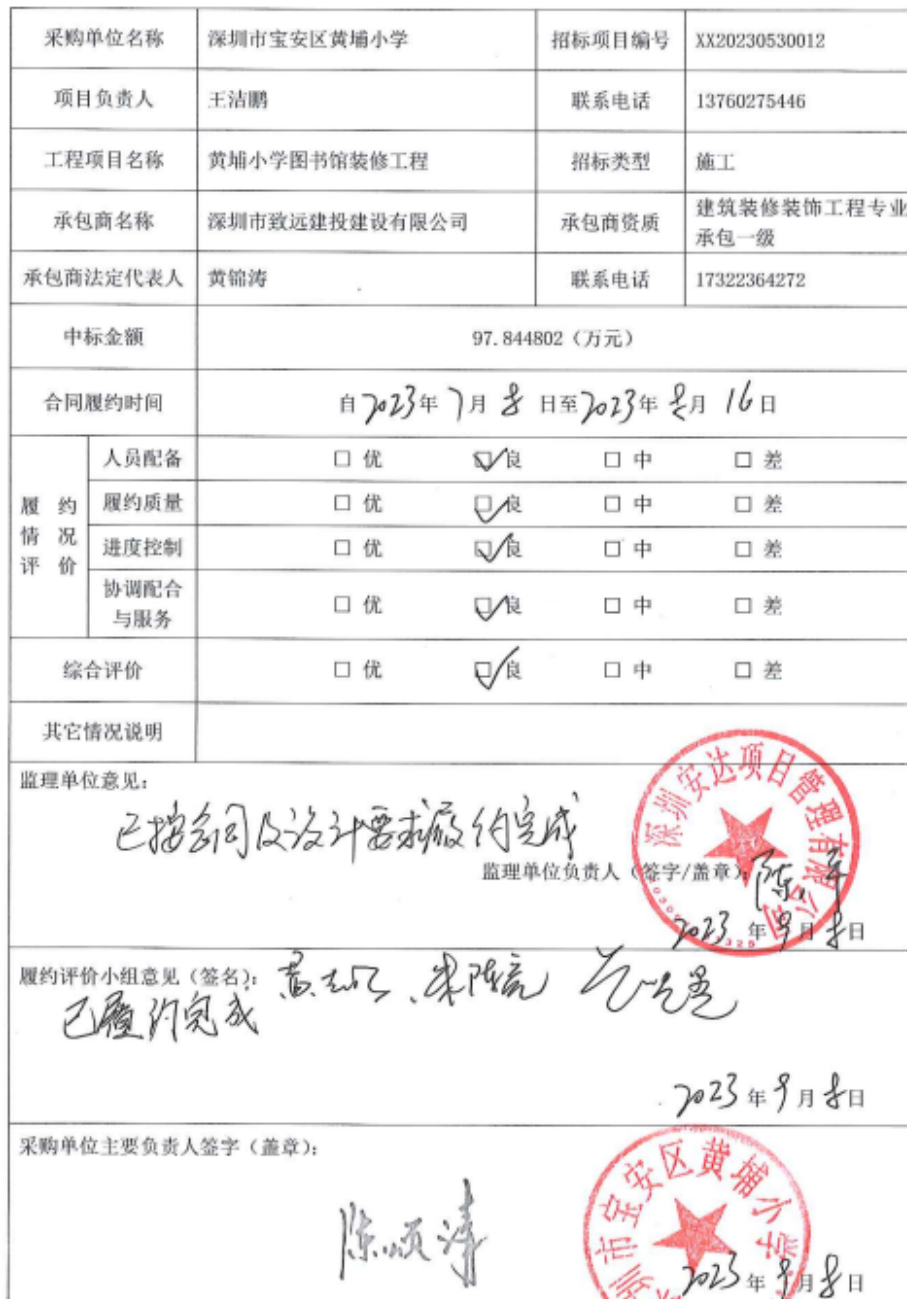 采购单位名称 深圳市宝安区黄埔小学 招标项目编号 XX20230530012
项目负责人 王洁鹏 联系电话 13760275446
工程项目名称 黄埔小学图书馆装修工程 招标类型 施工
承包商名称 深圳市致远建投建设有限公司 承包商资质 建筑装修装饰工程专业
承包一级
承包商法定代表人 黄锦涛 联系电话 17322364272
中标金额 97.844802（万元）
合同履约时间 自2023年7月8日至2023年8月16日
履约情况评价
人员配备 □ 优 ☑ 良 □ 中 □ 差
履约质量 □ 优 ☑ 良 □ 中 □ 差
进度控制 □ 优 ☑ 良 □ 中 □ 差
协调配合
与服务 □ 优 ☑ 良 □ 中 □ 差
综合评价 □ 优 ☑ 良 □ 中 □ 差
其它情况说明
监理单位意见：
已按合同及设计要求履约完成
深圳安达项目管理有限公司
监理单位负责人（签字/盖章）：
2023年9月8日
履约评价小组意见（签名）：
已履约完成
2023年9月8日
采购单位主要负责人签字（盖章）：
陈颂涛
圳市宝安区黄埔小学
2023年9月8日